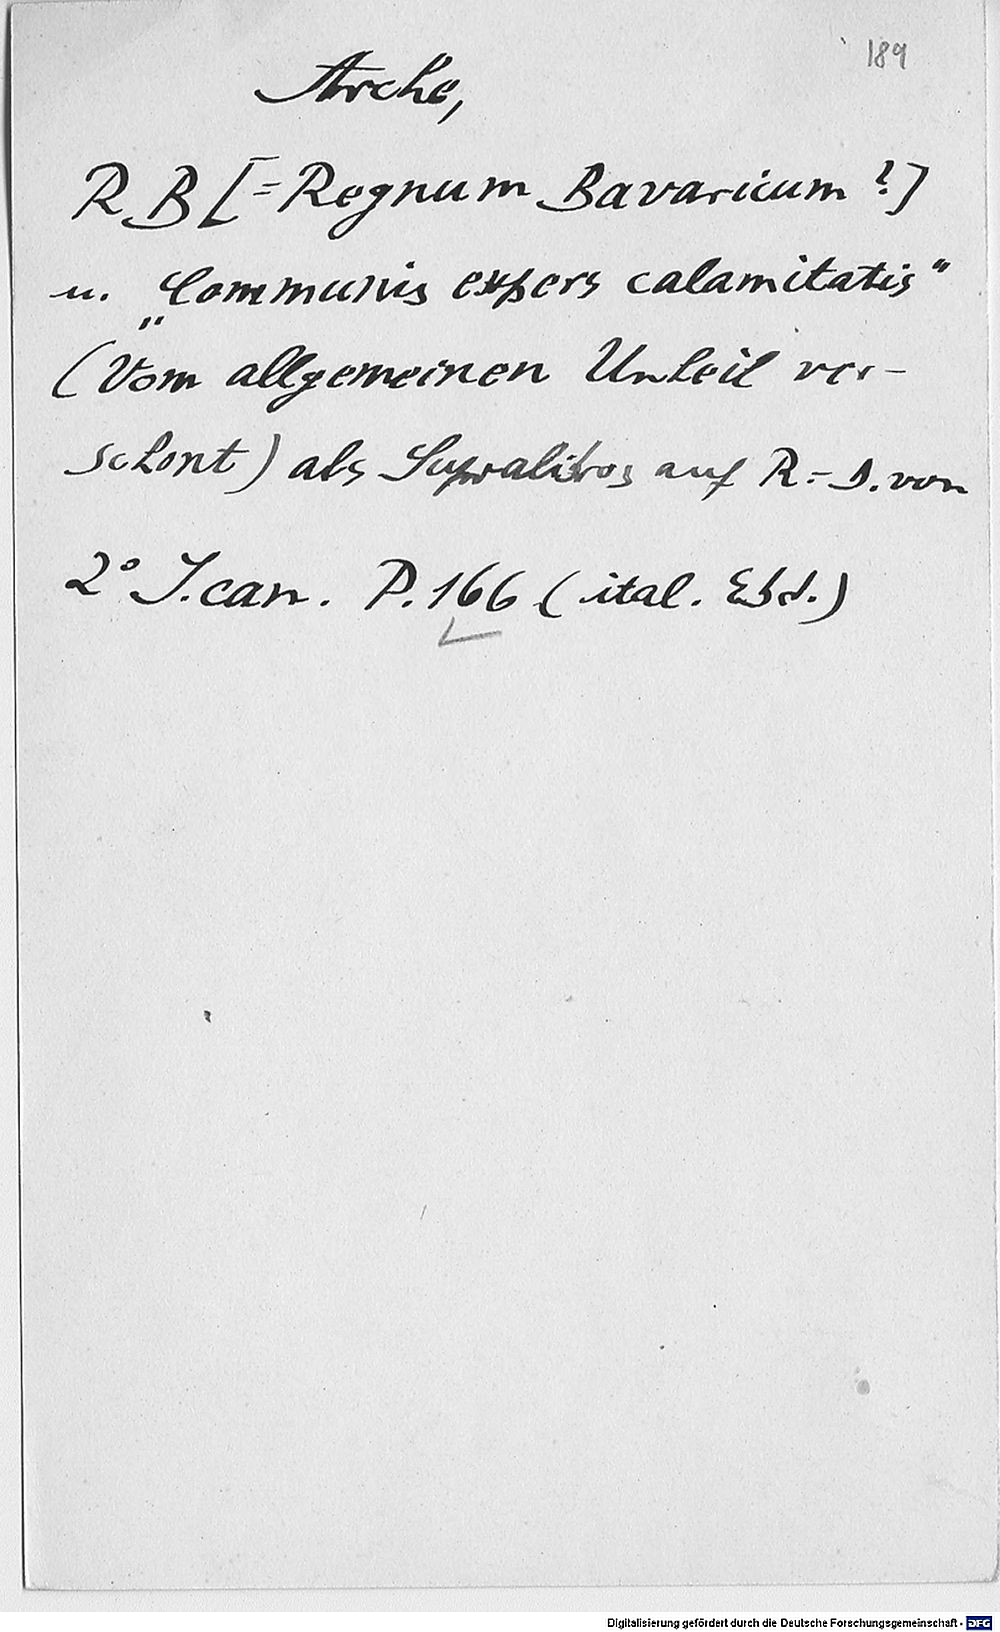 189
Arche,
R B [= Regnum Bavaricum ?]
u. „Communis expers calamitatis“
(Vom allgemeinen Unheil ver-
schont) als Supralibros auf R.= D. von
2° J. can. P. 166 (ital. Ebd.)
Digitalisierung gefördert durch die Deutsche Forschungsgemeinschaft - DFG